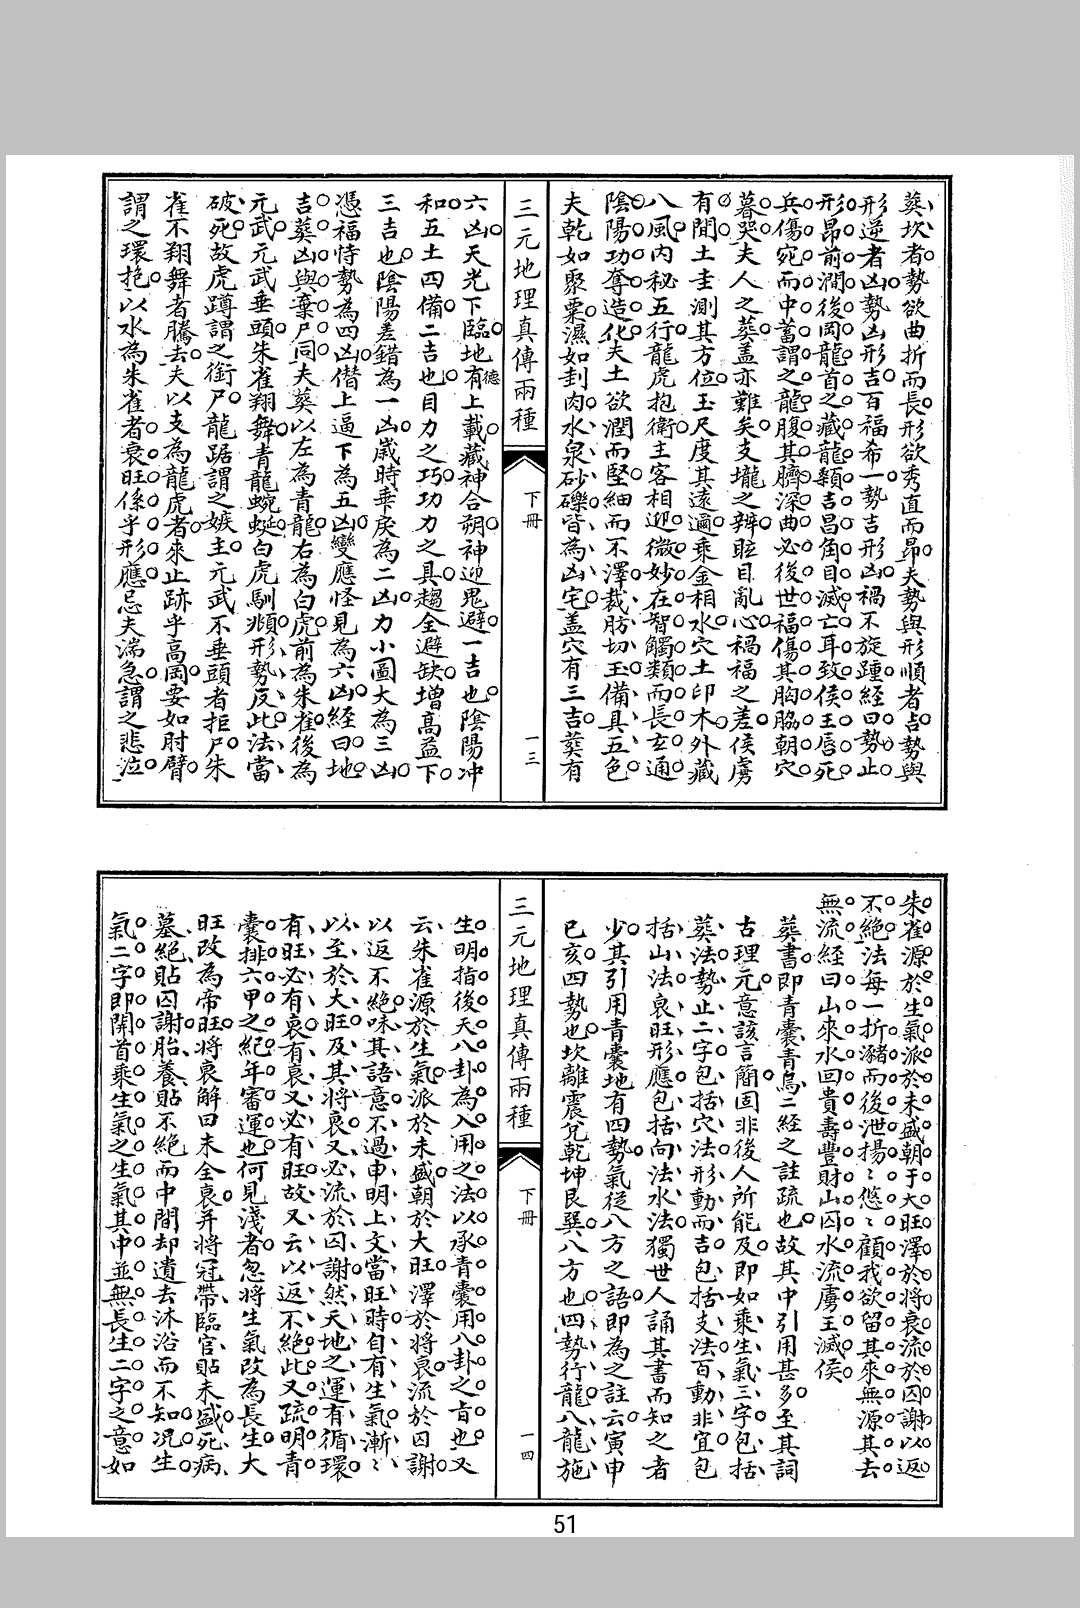 葬坎者勢欲曲折而長形欲秀直而昂夫勢與形順者吉勢與
形逆者凶勢凶形吉百福希一勢吉形凶禍不旋踵經曰勢止
形昂前澗後岡龍首之藏龍顙吉昌角目滅亡耳致侯王唇死
兵傷宛而中蓄謂之龍腹其臍深曲必後世福傷其胸脇朝穴
暮哭夫人之葬蓋亦難矣支壠之辨眩目亂心禍福之差侯虜
有間土圭測其方位玉尺度其遠邇乘金相水穴土印木外藏
八風內秘五行龍虎抱衛主客相迎微妙在智觸類而長玄通
陰陽功奪造化夫土欲潤而堅細而不澤裁肪切玉備具五色
夫乾如聚粟濕如刲肉水泉砂礫皆為凶宅蓋穴有三吉葬有
三元地理真傳兩種
下冊
一三
六凶天光下臨地有上載藏神合朔神迎鬼避一吉也陰陽冲
德
和五土四備二吉也目力之巧功力之具趨全避缺增高益下
三吉也陰陽差錯為一凶歲時乖戾為二凶力小圖大為三凶
憑福恃勢為四凶僭上逼下為五凶變應怪見為六凶經曰地
吉葬凶與棄尸同夫葬以左為青龍右為白虎前為朱雀後為
元武元武垂頭朱雀翔舞青龍蜿蜒白虎馴頫形勢反此法當
破死故虎蹲謂之銜尸龍踞謂之嫉主元武不垂頭者拒尸朱
雀不翔舞者騰去夫以支為龍虎者來止跡乎高岡要如肘臂
謂之環抱以水為朱雀者衰旺係乎形應忌夫湍急謂之悲泣
朱雀源於生氣派於未盛朝于大旺澤於將衰流於囚謝以返
不絕法每一折瀦而後泄揚ミ悠ミ顧我欲留其來無源其去
無流經曰山來水回貴壽豐財山囚水流虜王滅侯
葬書即青囊青烏二經之註疏也故其中引用甚多至其詞
古理元意該言簡固非後人所能及即如乘生氣三字包括
葬法勢止二字包括穴法形動而吉包括支法百動非宜包
括山法衰旺形應包括向法水法獨世人誦其書而知之者
少其引用青囊地有四勢氣從八方之語即為之註云寅申
巳亥四勢也坎離震兌乾坤艮巽八方也四勢行龍八龍施
三元地理真傳兩種
下冊
一四
生明指後天八卦為入用之法以承青囊用八卦之旨也又
云朱雀源於生氣派於未盛朝於大旺澤於將衰流於囚謝
以返不絕味其語意不過申明上文當旺時自有生氣漸ミ
以至於大旺及其將衰又必流於囚謝然天地之運有循環
有旺必有衰有衰又必有旺故又云以返不絕此又疏明青
囊排六甲之紀年審運也何見淺者忽將生氣改為長生大
旺改為帝旺將衰解曰未全衰并將冠帶臨官貼未盛死病
墓絕貼囚謝胎養貼不絕而中間却遺去沐浴而不知况生
氣二字即開首乘生氣之生氣其中並無長生二字之意如
51